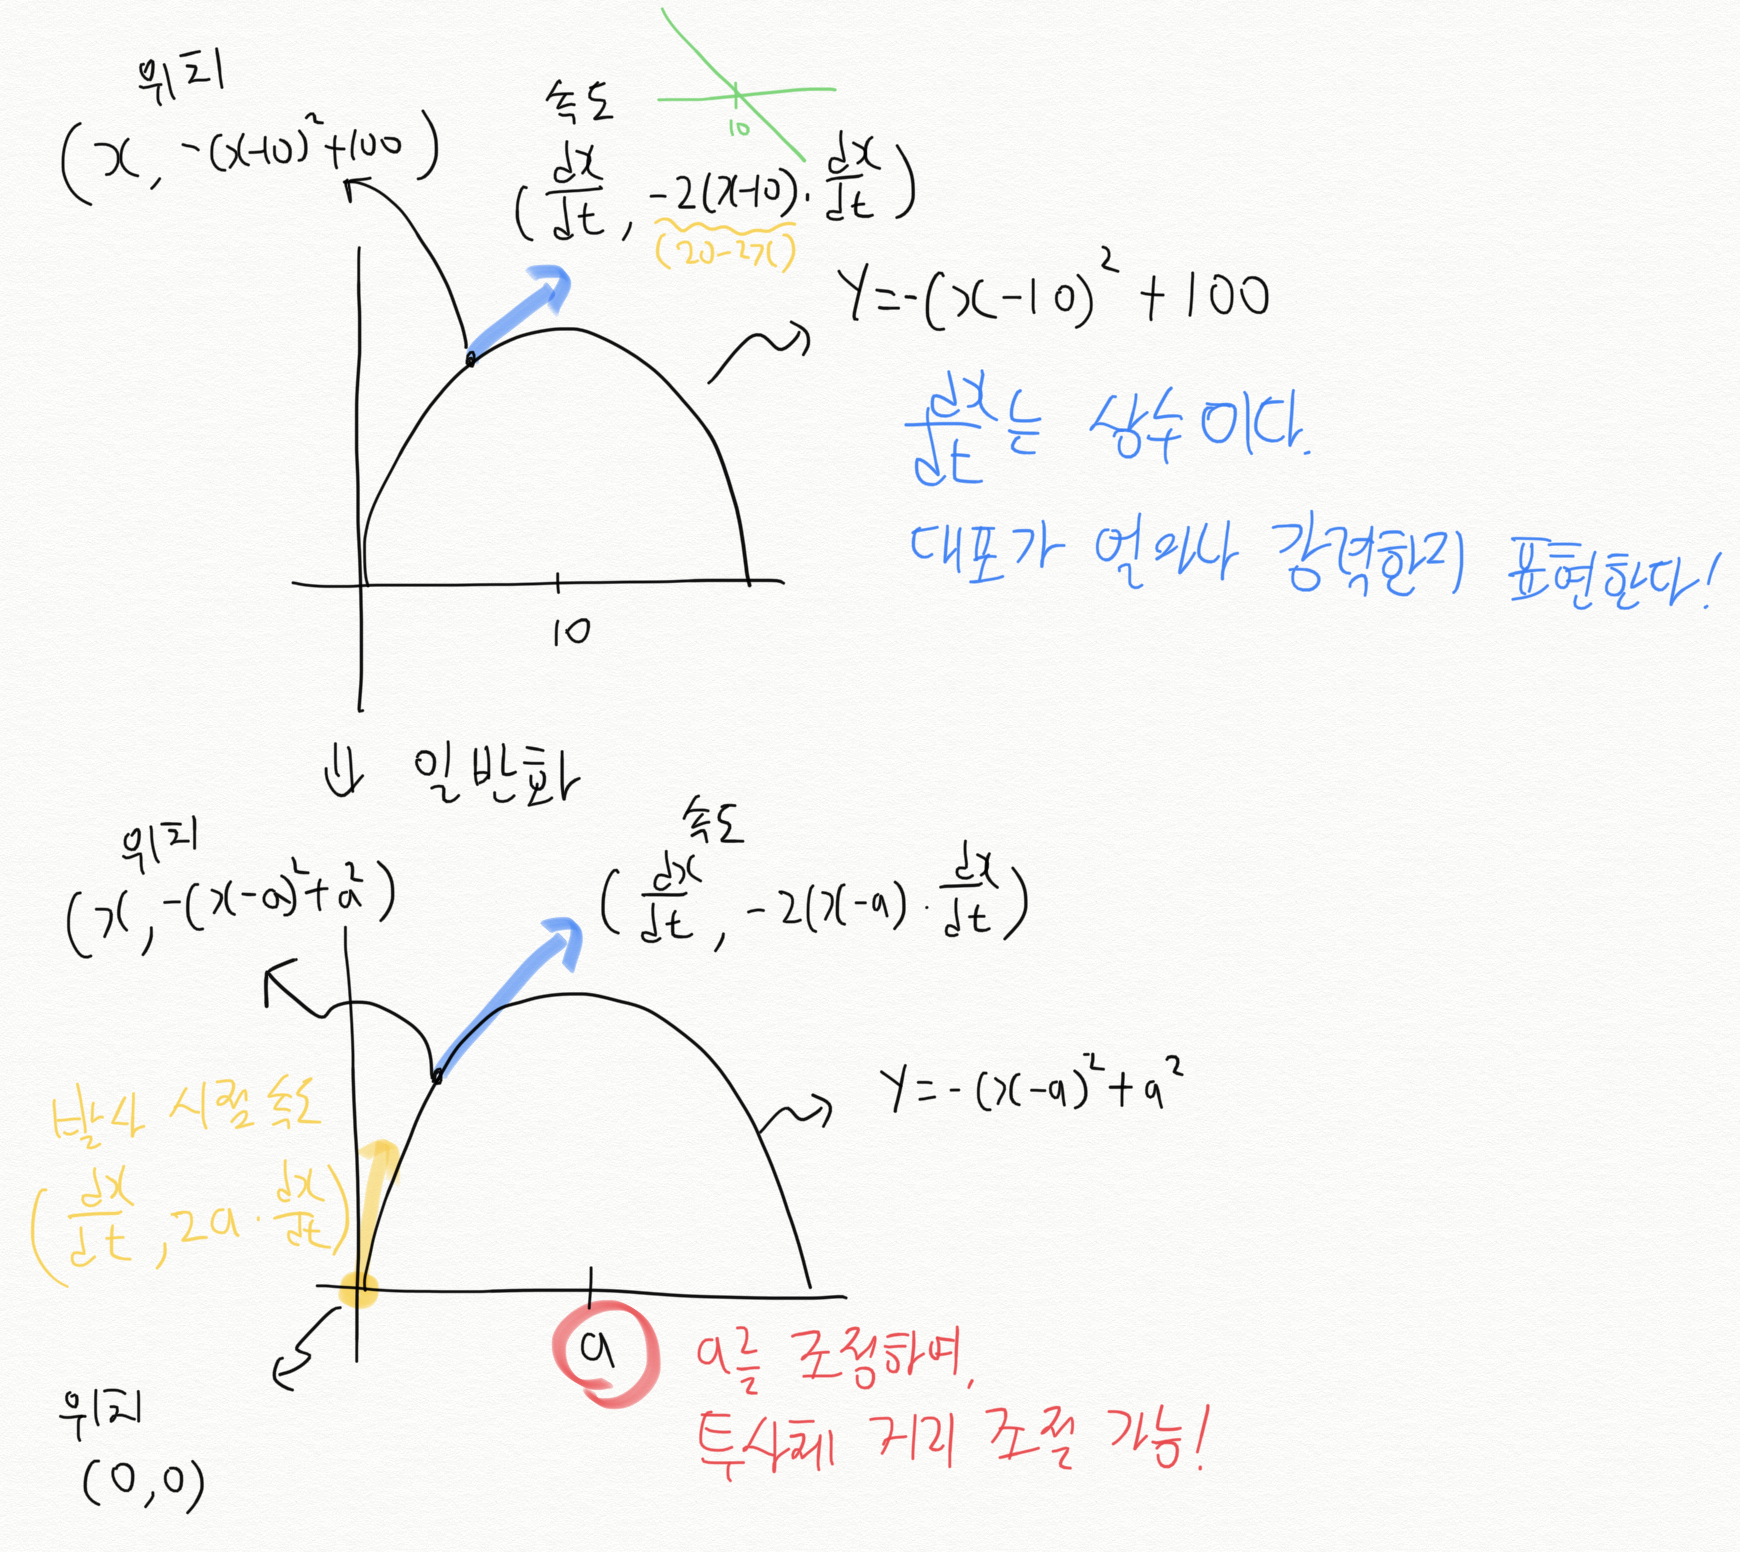 위치
(x, -(x-10)²+100)
속도
10
(dx/dt, -2(x-10)·dx/dt)
(20-2x)
Y=-(x-10)²+100
dx/dt는 상수이다.
대포가 얼마나 강력한지 표현한다!
10
⇓ 일반화
위치
(x, -(x-a)²+a²)
속도
(dx/dt, -2(x-a)·dx/dt)
Y=-(x-a)²+a²
발사 시점 속도
(dx/dt, 2a·dx/dt)
a
a를 조정하여,
투사체 거리 조절 가능!
위치
(0,0)